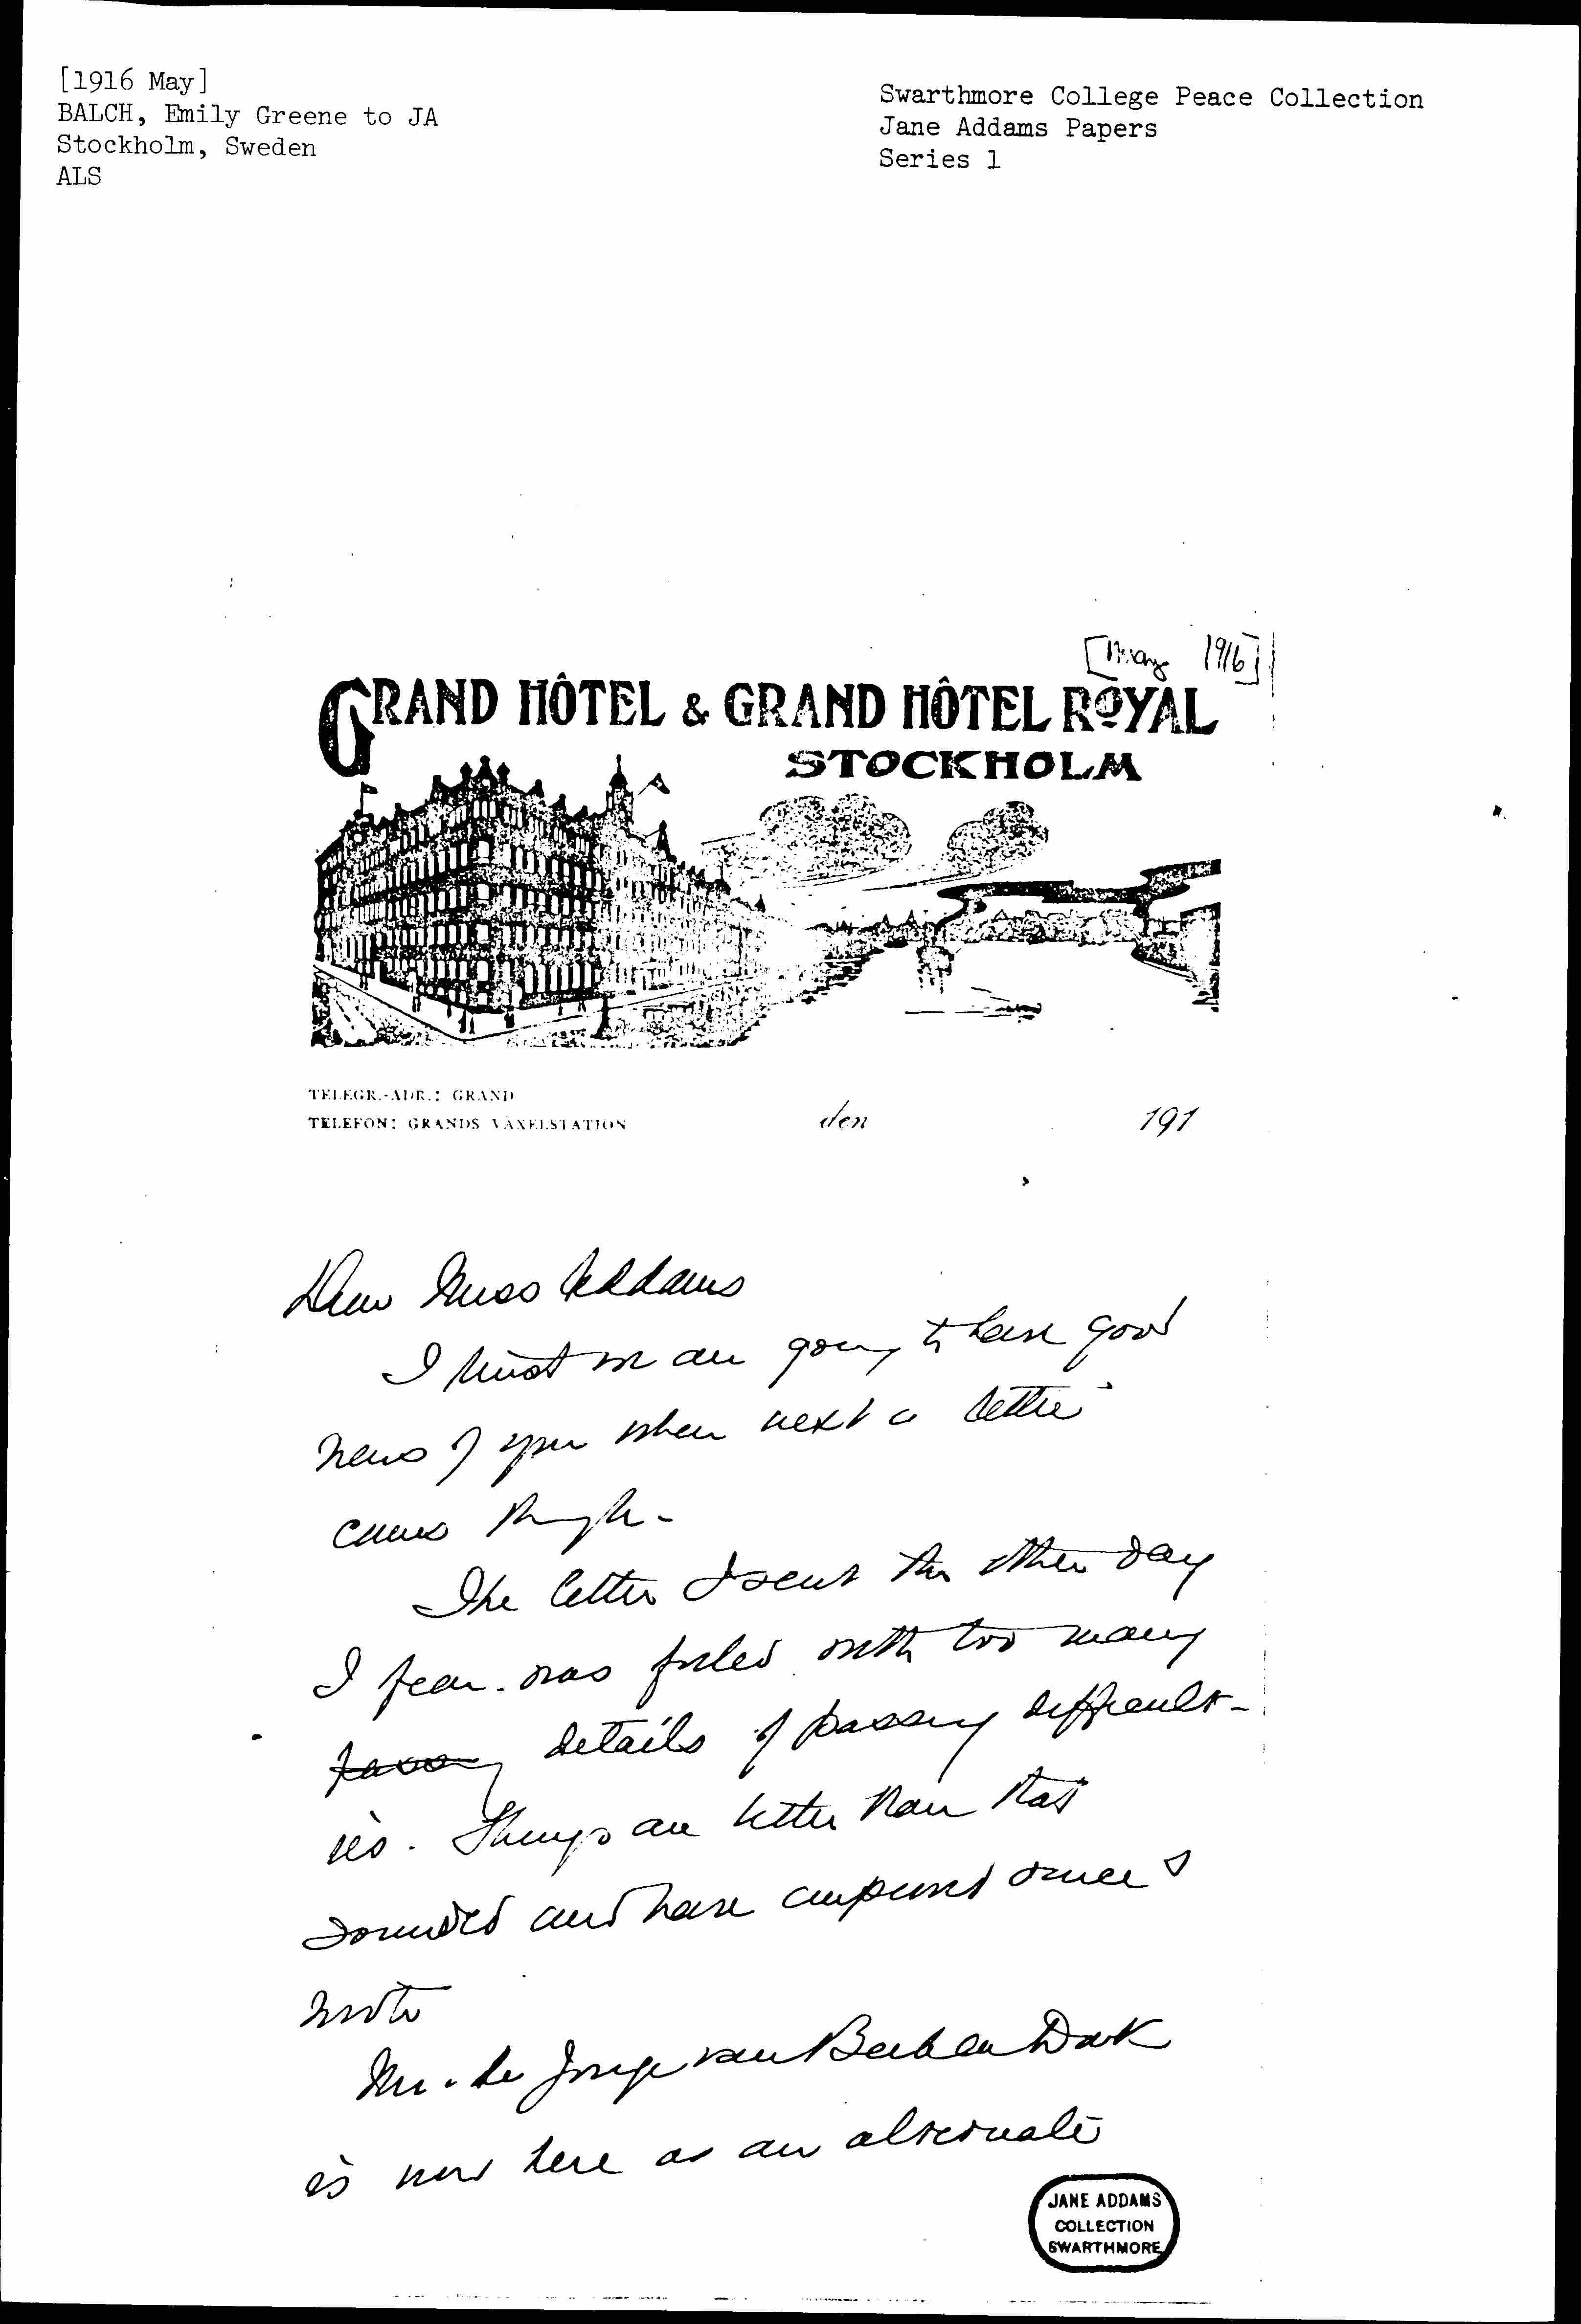 [1916 May]
BALCH, Emily Greene to JA
Stockholm, Sweden
ALS
Swarthmore College Peace Collection
Jane Addams Papers
Series 1
[May 1916]
GRAND HÔTEL & GRAND HÔTEL ROYAL
STOCKHOLM
TELEGR.-ADR.: GRAND
TELEFON: GRANDS VÄXELSTATION
den 191
Dear Miss Addams
I trust we are going to have good
news of you when next a letter
comes through -
The letter I sent the other day
I fear was filled with too many
passing details of passing difficult-
ies. Things are better than that
sounded and have improved since I
wrote
Mr. de Jong van Beek en Donk
is now here as an alternate
JANE ADDAMS
COLLECTION
SWARTHMORE